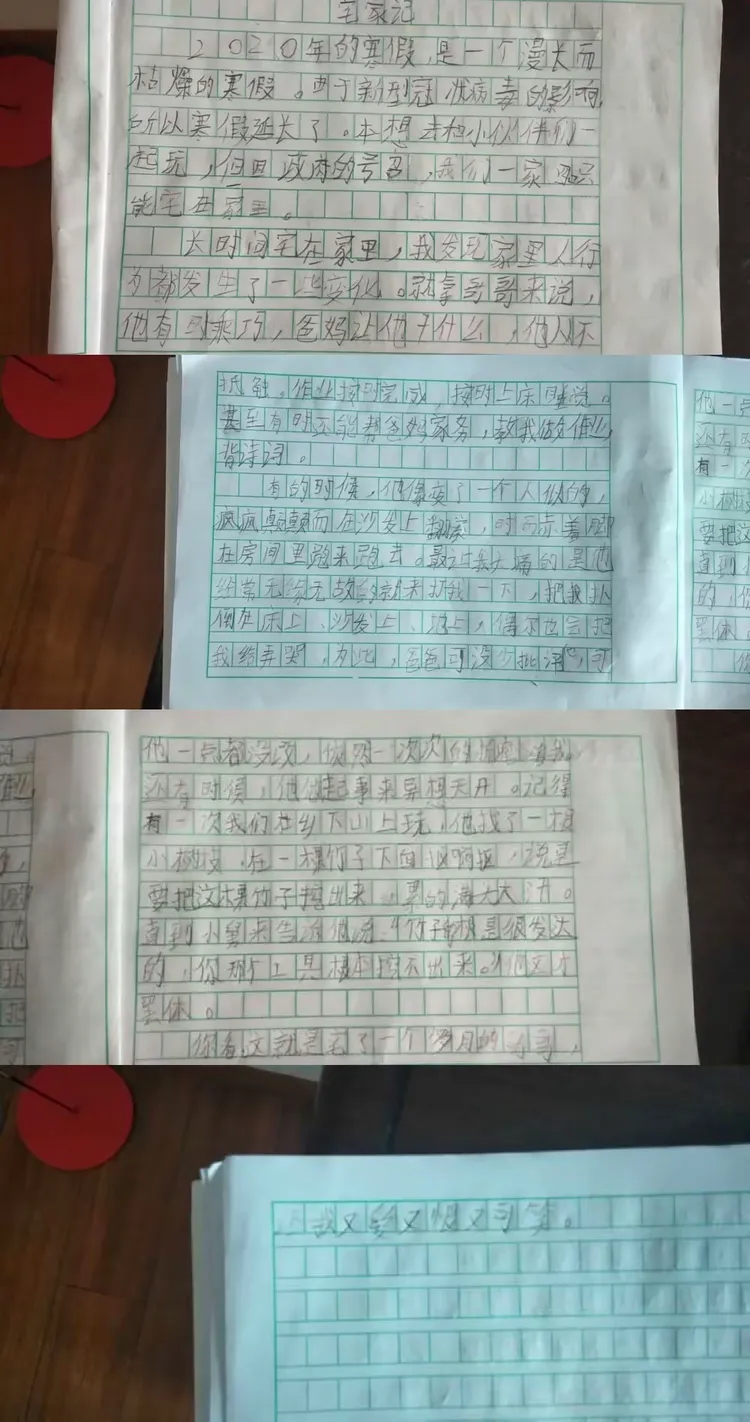 宅家记
2020年的寒假,是一个漫长而
枯燥的寒假。由于新型冠状病毒的影响,
所以寒假延长了。本想去和小伙伴们一
起玩,但因政府的号召,我们一家只
能宅在家里。
长时间宅在家里,我发现家里人行
为都发生了一些变化。就拿哥哥来说,
他有时乖巧,爸妈让他干什么,他从不
抵触,作业按时完成,按时上床睡觉。
甚至有时还能帮爸妈家务,教我做作业,
背诗词。
有的时候,他像变了一个人似的,
疯疯颠颠而在沙发上翻滚,时而赤着脚
在房间里跑来跑去。最让我头痛的是他
经常无缘无故的就来打我一下,把我扑
倒在床上、沙发上、地上,偶尔也会把
我给弄哭,为此,爸爸可没少批评他,可
他一点都没改,依然一次次的
还有时候,他做起事来异想天开。记得
有一次我们在乡下山上玩,他找了一根
小树枝,在一棵竹子下面抠啊抠,说是
要把这棵竹子挖出来,累的满大大汗。
直到小舅来告诉他说:“竹子的根是很发达
的,你那个工具根本挖不出来。”他这才
罢休。
你看,这就是宅了一个多月的哥哥,
让我又爱又恨又可笑。